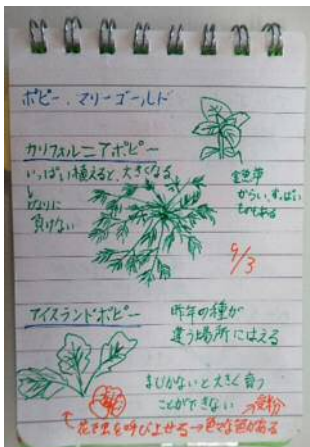 ポピー、マリーゴールド
カリフォルニアポピー
いっぱい植えると、大きくなる
となりに
負けない
金魚草
からい、すっぱい
ものもある
9/3
アイスランドポピー
昨年の種が
違う場所にはえる
まびかないと大きく育つ
ことができない
受粉
花で虫を呼びよせる→色々な色がある